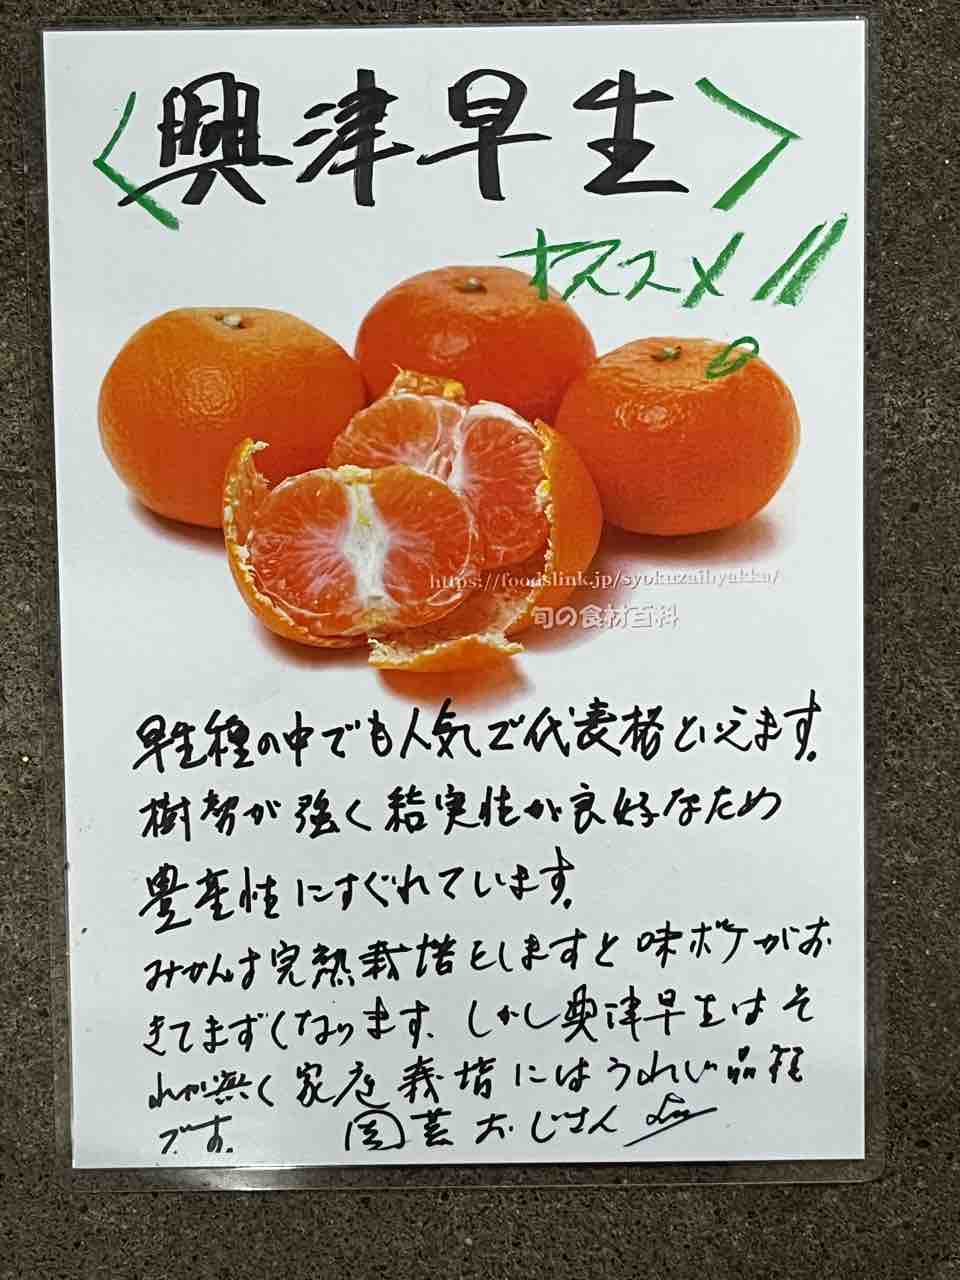 〈興津早生〉
オススメ!!
https://foodslink.jp/syokuzaihyakka/
旬の食材百科
早生種の中でも人気で代表格といえます。
樹勢が強く結実性が良好なため
豊産性にすぐれています。
みかんは完熟栽培をしますと味ボケがお
きてまずくなります。しかし興津早生はそ
れが無く家庭栽培にはうれしい品種
です。 園芸おじさん